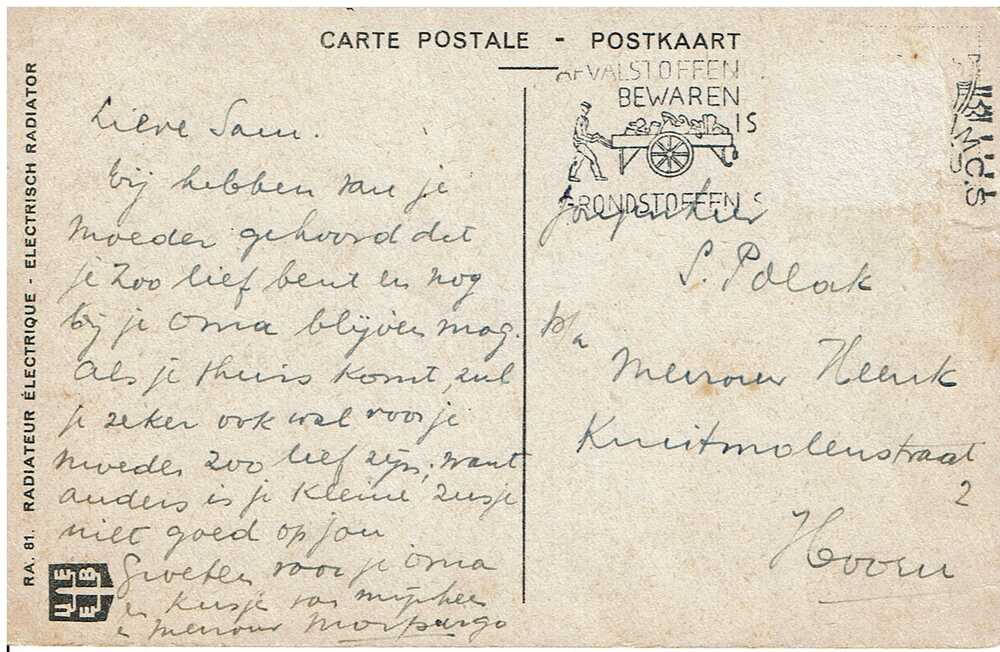 CARTE POSTALE - POSTKAART
RA. 81. RADIATEUR ÉLECTRIQUE - ELECTRISCH RADIATOR
AFVALSTOFFEN
BEWAREN
IS
GRONDSTOFFEN S
Lieve Sam.
Wij hebben van je
moeder gehoord dat
je zoo lief bent en nog
bij je Oma blijven mag.
Als je thuis komt, zul
je zeker ook wel voor je
moeder zoo lief zijn, want
anders is je kleine zusje
niet goed op jou
Groeten voor je Oma
en kusje van mijnheer
en mevrouw Morpurgo
Jongenheer
S. Polak
p/a
Mevrouw Heenk
Kruitmolenstraat
2
Hoorn